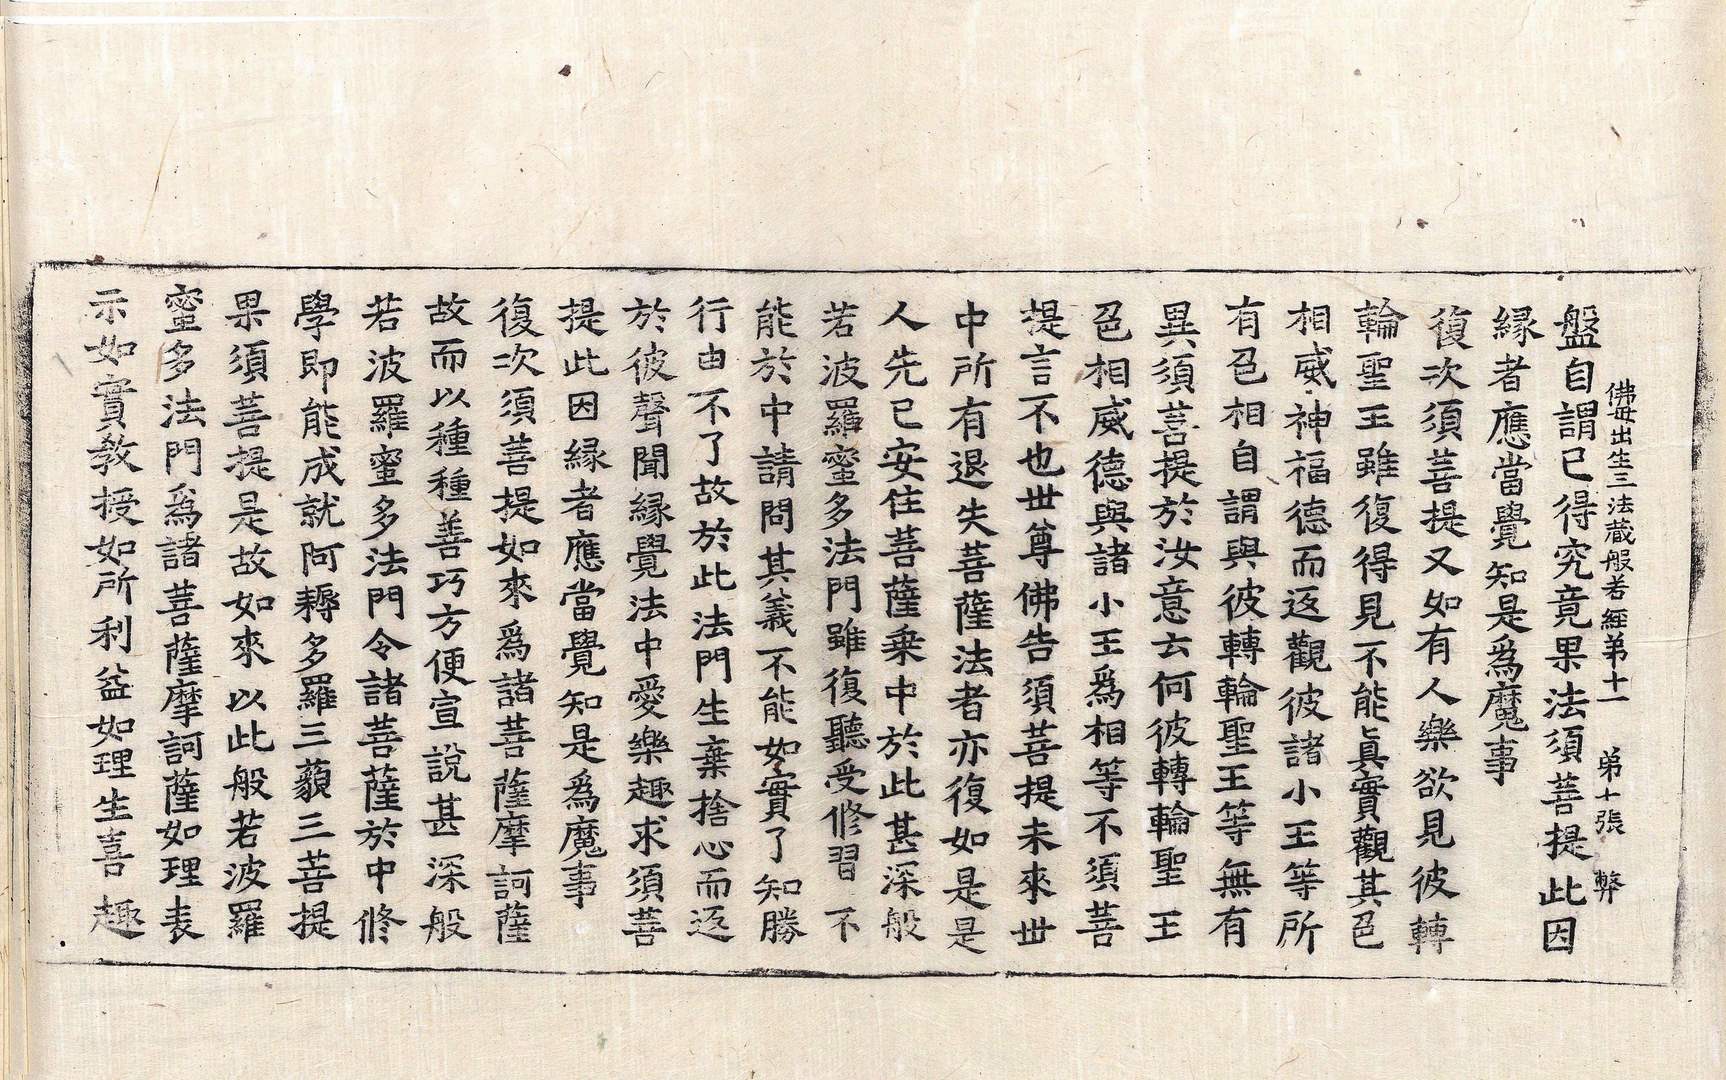 佛毋出生三法藏般若經第十一　第十張　弊
盤自謂已得究竟果法須菩提此因
縁者應當覺知是爲魔事
復次須菩提又如有人樂欲見彼轉
輪聖王雖復得見不能眞實觀其色
相威神福德而返觀彼諸小王等所
有色相自謂與彼轉輪聖王等無有
異須菩提於汝意云何彼轉輪聖王
色相威德與諸小王爲相等不須菩
提言不也世尊佛告須菩提未來世
中所有退失菩薩法者亦復如是是
人先已安住菩薩乗中於此甚深般
若波羅蜜多法門雖復聽受修習不
能於中請問其義不能如實了知勝
行由不了故於此法門生棄捨心而返
於彼聲聞縁覺法中愛樂趣求須菩
提此因縁者應當覺知是爲魔事
復次須菩提如來爲諸菩薩摩訶薩
故而以種種善巧方便宣說甚深般
若波羅蜜多法門令諸菩薩於中修
學即能成就阿耨多羅三藐三菩提
果須菩提是故如來以此般若波羅
蜜多法門爲諸菩薩摩訶薩如理表
示如實教授如所利益如理生喜趣